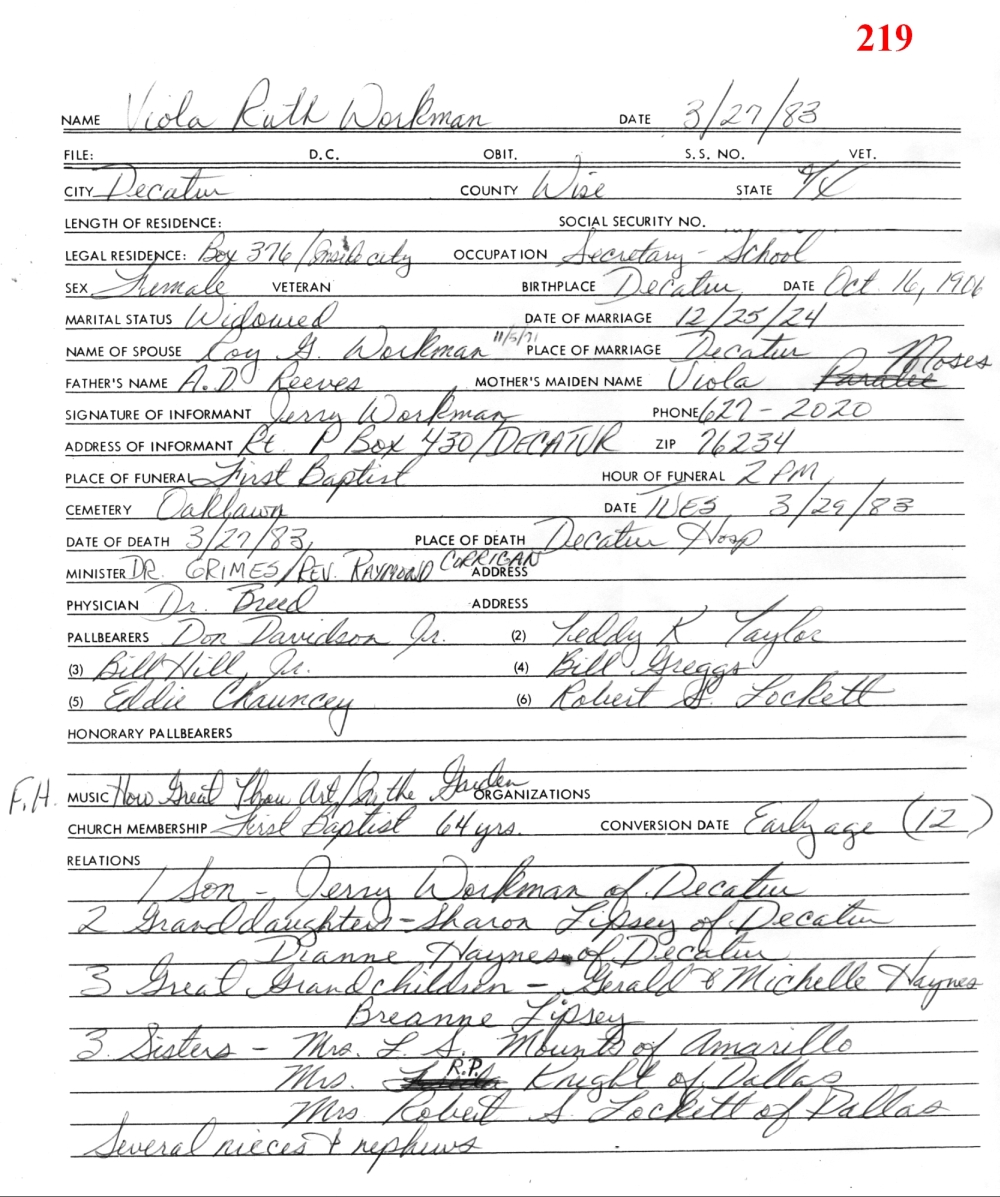 219
NAME Viola Ruth Workman DATE 3/27/83
FILE: D.C. OBIT. S.S. NO. VET.
CITY Decatur COUNTY Wise STATE TX
LENGTH OF RESIDENCE: SOCIAL SECURITY NO.
LEGAL RESIDENCE: Box 376/Inside city OCCUPATION Secretary - School
SEX Female VETERAN BIRTHPLACE Decatur DATE Oct 16, 1906
MARITAL STATUS Widowed DATE OF MARRIAGE 12/25/24
NAME OF SPOUSE Roy G. Workman 11/5/71 PLACE OF MARRIAGE Decatur
FATHER'S NAME A.D. Reeves MOTHER'S MAIDEN NAME Viola Moses
SIGNATURE OF INFORMANT Jerry Workman PHONE 627-2020
ADDRESS OF INFORMANT Rt. P Box 430/DECATUR ZIP 76234
PLACE OF FUNERAL First Baptist HOUR OF FUNERAL 2 PM
CEMETERY Oaklawn DATE TUES 3/29/83
DATE OF DEATH 3/27/83, PLACE OF DEATH Decatur Hosp
MINISTER DR. GRIMES/REV. RAYMOND CORRIGAN ADDRESS
PHYSICIAN Dr. Breed ADDRESS
PALLBEARERS Don Davidson Jr. (2) Teddy K Taylor
(3) Bill Hill, Jr. (4) Bill Greggs
(5) Eddie Chauncey (6) Robert S. Lockett
HONORARY PALLBEARERS
F.H. MUSIC How Great Thou Art/In the Garden ORGANIZATIONS
CHURCH MEMBERSHIP First Baptist 64 yrs. CONVERSION DATE Early age (12)
RELATIONS
1 Son - Jerry Workman of Decatur
2 Granddaughters - Sharon Lipsey of Decatur
Dianne Haynes of Decatur
3 Great Grandchildren - Gerald & Michelle Haynes
Breanne Lipsey
3 Sisters - Mrs. L. S. Mounts of Amarillo
Mrs. R.P. Knight of Dallas
Mrs. Robert S. Lockett of Dallas
Several nieces & nephews